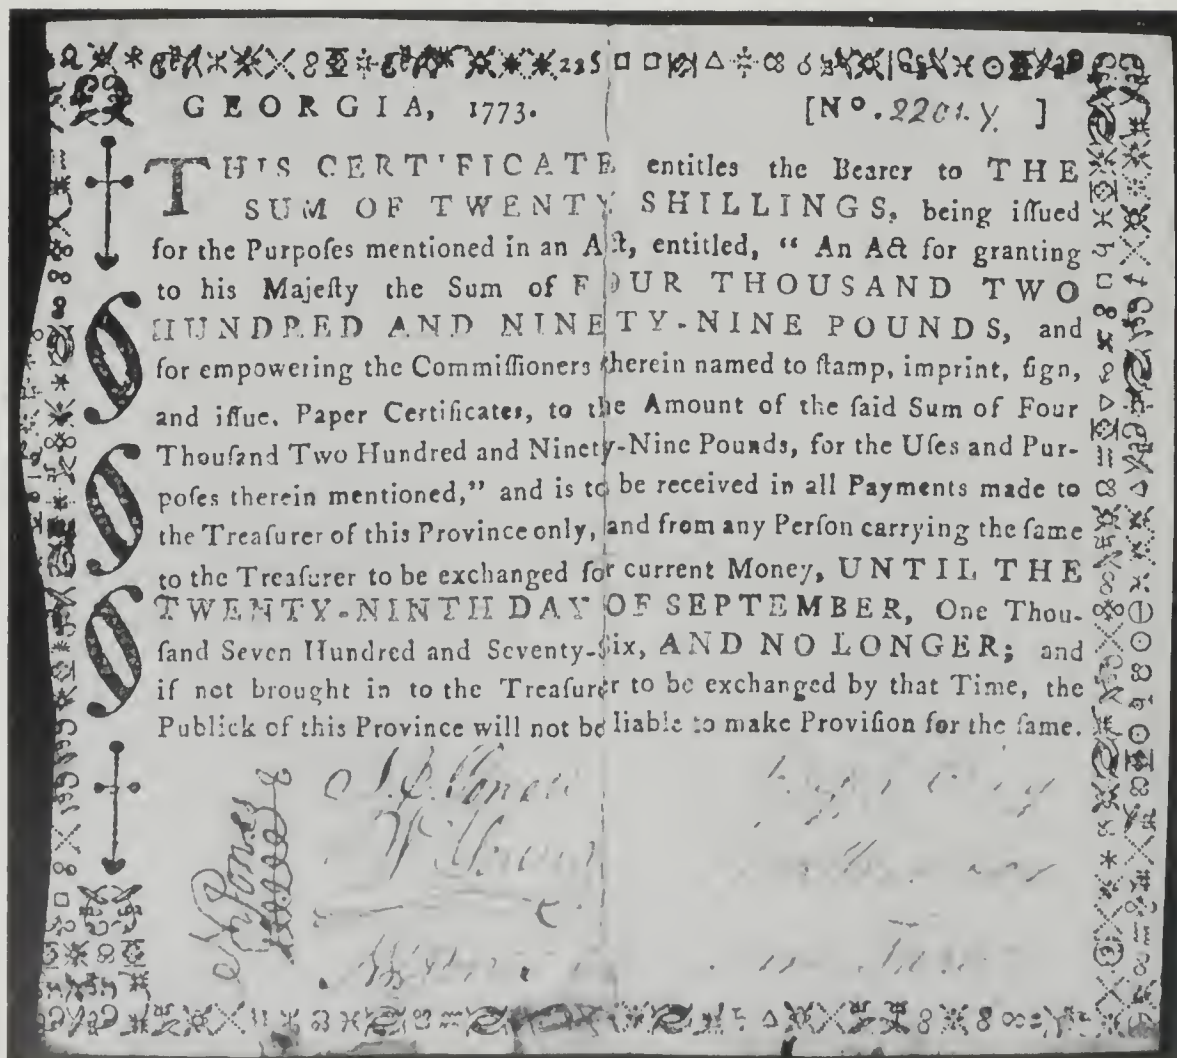 GEORGIA, 1773. [No. 2201. y ]
THIS CERTIFICATE entitles the Bearer to THE
SUM OF TWENTY SHILLINGS, being iſſued
for the Purpoſes mentioned in an Act, entitled, “ An Act for granting
to his Majeſty the Sum of FOUR THOUSAND TWO
HUNDRED AND NINETY-NINE POUNDS, and
for empowering the Commiſſioners therein named to ſtamp, imprint, ſign,
and iſſue, Paper Certificates, to the Amount of the ſaid Sum of Four
Thouſand Two Hundred and Ninety-Nine Pounds, for the Uſes and Pur-
poſes therein mentioned,” and is to be received in all Payments made to
the Treaſurer of this Province only, and from any Perſon carrying the ſame
to the Treaſurer to be exchanged for current Money, UNTIL THE
TWENTY-NINTH DAY OF SEPTEMBER, One Thou-
ſand Seven Hundred and Seventy-Six, AND NO LONGER; and
if not brought in to the Treaſurer to be exchanged by that Time, the
Publick of this Province will not be liable to make Proviſion for the ſame.
Jones